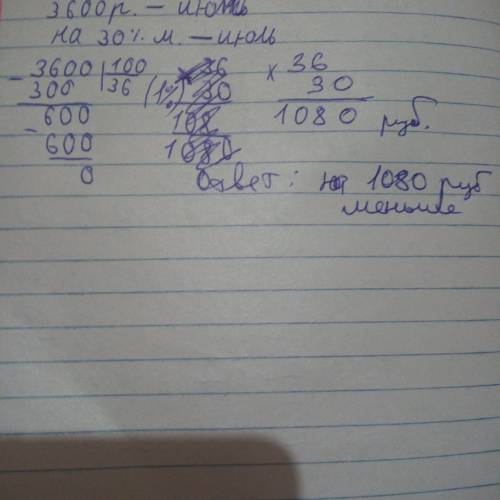 3600р. – июнь
на 30% м. – июль
– 3600 | 100
300 | 36 (1%)
600
– 600
0
x 36
30
1080 руб.
Ответ: на 1080 руб
меньше